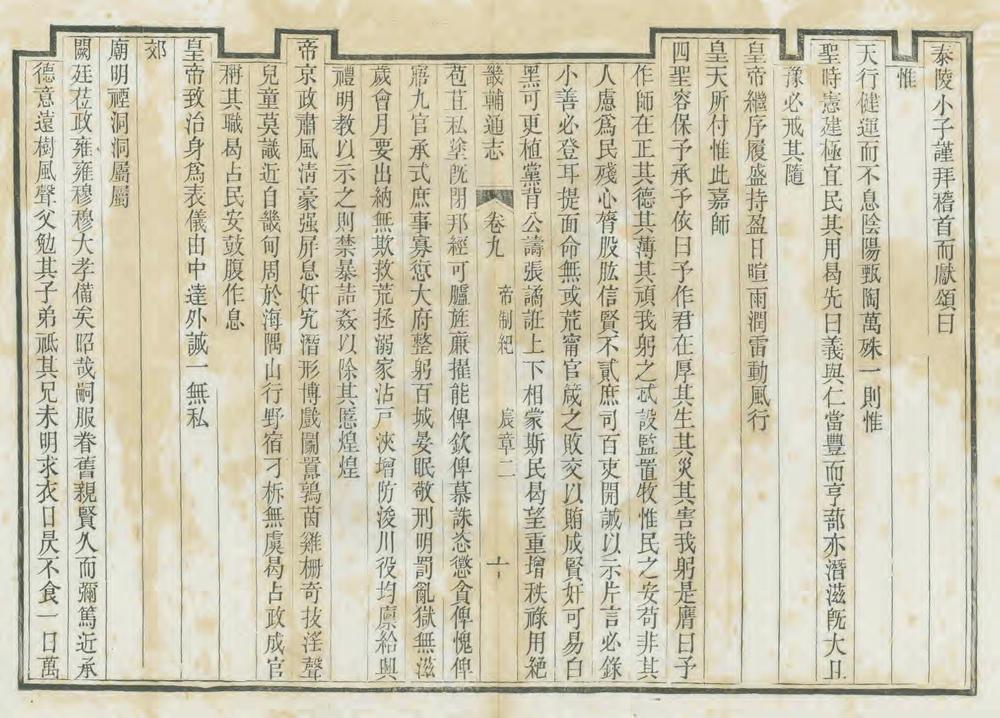 泰陵小子謹拜稽首而獻頌曰
惟
天行健運而不息陰陽甄陶萬殊一則惟
聖時憲建極宜民其用曷先曰義與仁當豐而亨蔀亦潛滋旣大且
豫必戒其隨
皇帝繼序履盛持盈日暄雨潤雷動風行
皇天所付惟此嘉師
四聖容保予承予依曰予作君在厚其生其災其害我躬是膺曰予
作師在正其德其薄其頑我躬之忒設監置牧惟民之安苟非其
人慮爲民殘心膂股肱信賢不貳庶司百吏開誠以示片言必錄
小善必登耳提面命無或荒甯官箴之敗交以賄成賢奸可易白
黑可更植黨背公譸張譎誑上下相蒙斯民曷望重增秩祿用絕
畿輔通志 卷九 帝制紀 宸章二 十
苞苴私塗旣閉邦經可臚旌廉擢能俾欽俾慕誅恣懲貪俾愧俾
寤九官承式庶事寡愆大府整躬百城晏眠敬刑明罰亂獄無滋
歲會月要出納無欺救荒拯溺家沾戸浹增防浚川役均廩給興
禮明教以示之則禁暴詰姦以除其慝煌煌
帝京政肅風淸豪强屏息奸宄潛形博戲鬭囂鶉茵雞柵奇技淫聲
兒童莫識近自畿甸周於海隅山行野宿刁柝無虞曷占政成官
稱其職曷占民安鼓腹作息
皇帝致治身爲表儀由中達外誠一無私
郊
廟明禋洞洞屬屬
闕廷莅政雍雍穆穆大孝備矣昭哉嗣服眷舊親賢久而彌篤近承
德意遠樹風聲父勉其子弟祗其兄未明求衣日昃不食一日萬